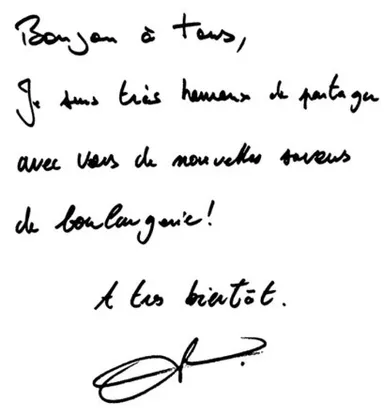 Bonjour à tous,
Je suis très heureux de partager
avec vous de nouvelles saveurs
de boulangerie!
A très bientôt.